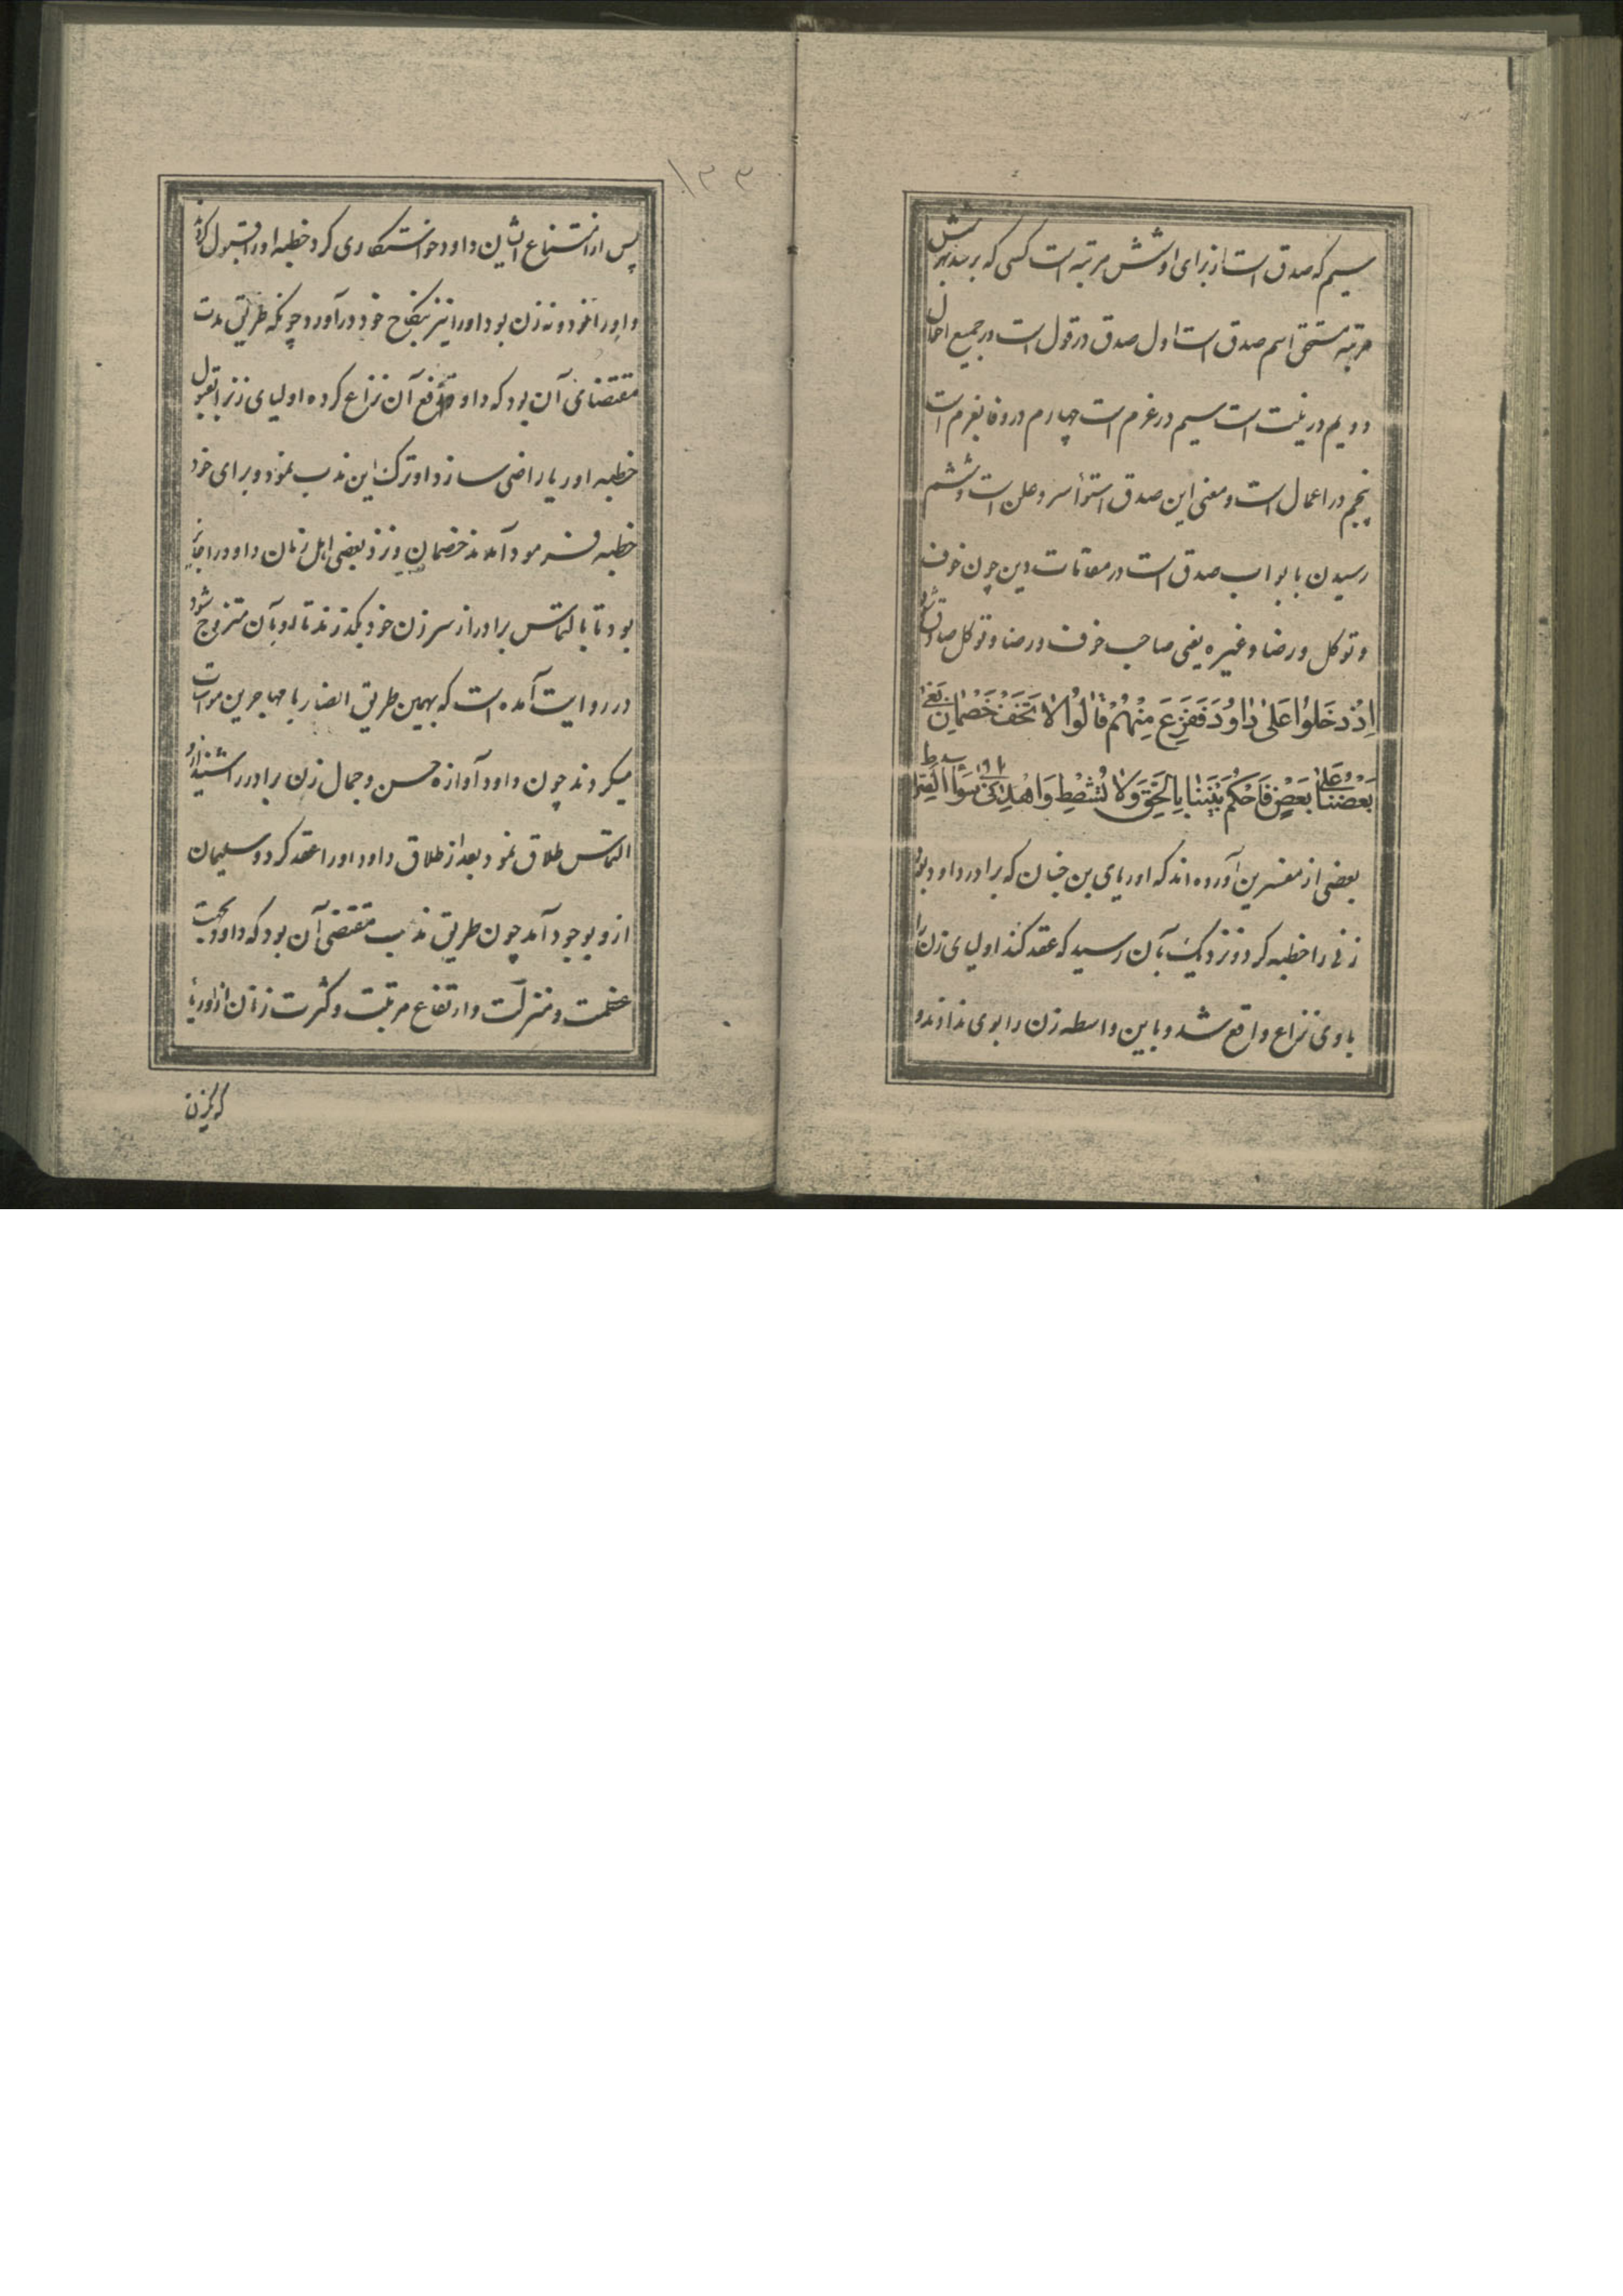 سیم که صدق است از برای او شش مرتبه است کسی که برسد بهر شش
مرتبه مستحق اسم صدق است اول صدق در قول است در جمیع احوال
دویم در نیت است سیم در عزم است چهارم در وفا بعزم است
پنجم در اعمال است و معنی این صدق استوأ سر و علن است و ششم
رسیدن بابواب صدق است در مقامات دین چون خوف
و توکل و رضا و غیره یعنی صاحب خوف و رضا و توکل صادق شود
اِذْ دَخَلُوا عَلىٰ داوُدَ فَفَزِعَ مِنْهُمْ قالُوا لا تَخَفْ خَصْمانِ بَغىٰ
بَعْضُنا عَلىٰ بَعْضٍ فَاحْكُمْ بَيْنَنا بِالْحَقِّ وَلا تُشْطِطْ وَاهْدِنا اِلىٰ سَوآءِ الصِّراطِ
بعضی از مفسرین آورده‌اند که اوریای بن حنان که برادر داود بود
زنی را خطبه کرد و نزدیک بآن رسید که عقد کند اولیای زن را
با وی نزاع واقع شد و باین واسطه زن را بوی ندادند و
۱۳۳
پس از امتناع ایشان داود خواستکاری کرد خطبه او را قبول کردند
و او را نود و نه زن بود او را نیز بنکاح خود درآورد چونکه طریق
مقتضای آن بود که داود رفع آن نزاع کرده اولیای زنرا بقبول
خطبه اوریا راضی سازد او ترک این ندب نمود و برای خود
خطبه فرمود آمدند خصمان و نزد بعضی اهل زمان داود را جایز
بود تا بالتماس برادر از سر زن خود بگذرند تا او بآن متزوج شود
در روایت آمده است که بهمین طریق انصار با مهاجرین مواسات
میکردند چون داود آوازه حسن و جمال زن برادر را شنید از او
التماس طلاق نمود بعد از طلاق داود او را عقد کرد و سلیمان
از و بوجود آمد چون طریق ندب مقتضی آن بود که داود بجهت
عظمت و منزلت و ارتفاع مرتبت و کثرت زنان از اوریا
که یکزن